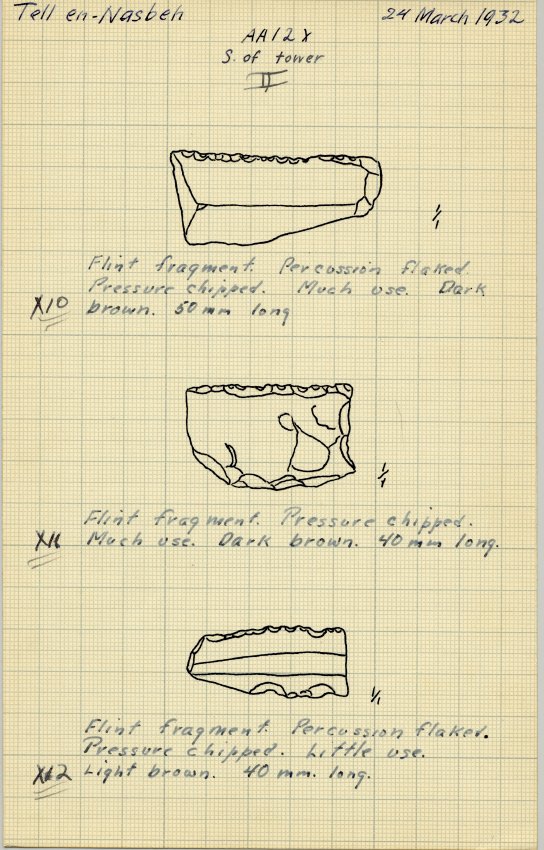 Tell en-Nasbeh 24 March 1932
AA12X
S. of tower
II
1/1
Flint fragment. Percussion flaked.
Pressure chipped. Much use. Dark
X10 brown. 50 mm long
1/1
Flint fragment. Pressure chipped.
X11 Much use. Dark brown. 40 mm long.
1/1
Flint fragment. Percussion flaked.
Pressure chipped. Little use.
X12 Light brown. 40 mm. long.